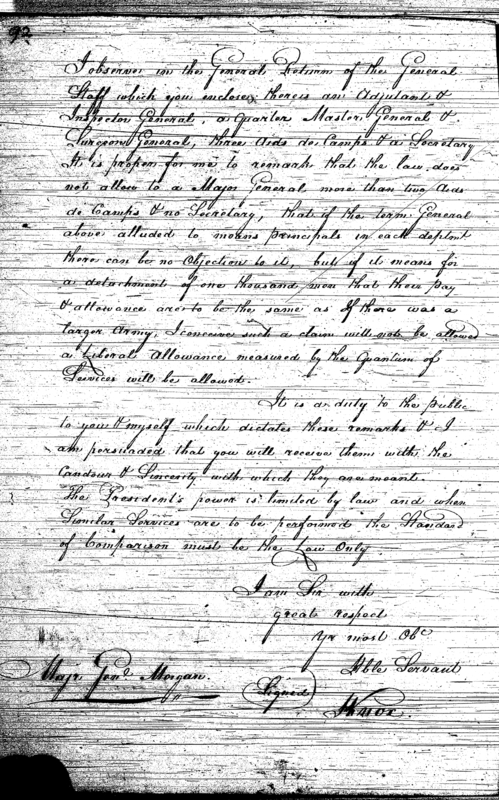 92
I observe in the General Return of the General
Staff which you enclose, there is an Adjutant &
Inspector General, a Quarter Master General &
Surgeon General, three Aids de Camps & a Secretary
It is proper for me to remark that the law does
not allow to a Major General more than two Aids
de Camps & no Secretary, that if the term General
above alluded to means principals in each deptmt
there can be no Objection to it, but if it means for
a detachment of one thousand men that their pay
& allowance are to be the same as If there was a
larger Army, I conceive such a claim will not be allowed
a Liberal Allowance measured by the Quantum of
Services will be allowed.
It is a duty to the public
to you & myself which dictates these remarks & I
am persuaded that you will receive them with the
Candour & Sincerity with which they are meant.
The President's power is limited by law and when
Similar Services are to be performed the Standard
of Comparison must be the Law Only.
I am Sir with
great respect
Yr most Obt
Hble Servant
Majr Genl Morgan.
(Signed)
HKnox.